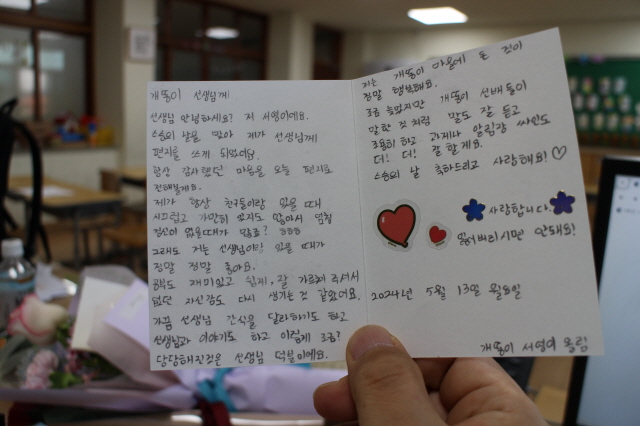 개똥이 선생님께
선생님 안녕하세요? 저 서영이예요.
스승의 날을 맞아 제가 선생님께
편지를 쓰게 되었어요.
항상 감사했던 마음을 오늘 편지로
전해볼게요.
제가 항상 친구들이랑 있을 때
시끄럽고 가만히 있지도 않아서 엄청
정신이 없을때가 많죠? ㅎㅎㅎ
그래도 저는 선생님이랑 있을 때가
정말 정말 좋아요.
공부도 재미있고 쉽게, 잘 가르쳐 주셔서
없던 자신감도 다시 생기는 것 같았어요.
가끔 선생님 간식을 달라하기도 하고
선생님과 이야기도 하고 이렇게 조금?
당당해진것은 선생님 덕분이에요.
저는 개똥이 마을에 온 것이
정말 행복해요.
조금 늦었지만 개똥이 선배들이
말한 것 처럼 말도 잘 듣고
조용히 하고 과제나 알림장 싸인도
더! 더! 잘 할게요.
스승의 날 축하드리고 사랑해요! ♡
사랑합니다.
잃어버리시면 안돼요!
2024년 5월 13일 월요일
개똥이 서영이 올림